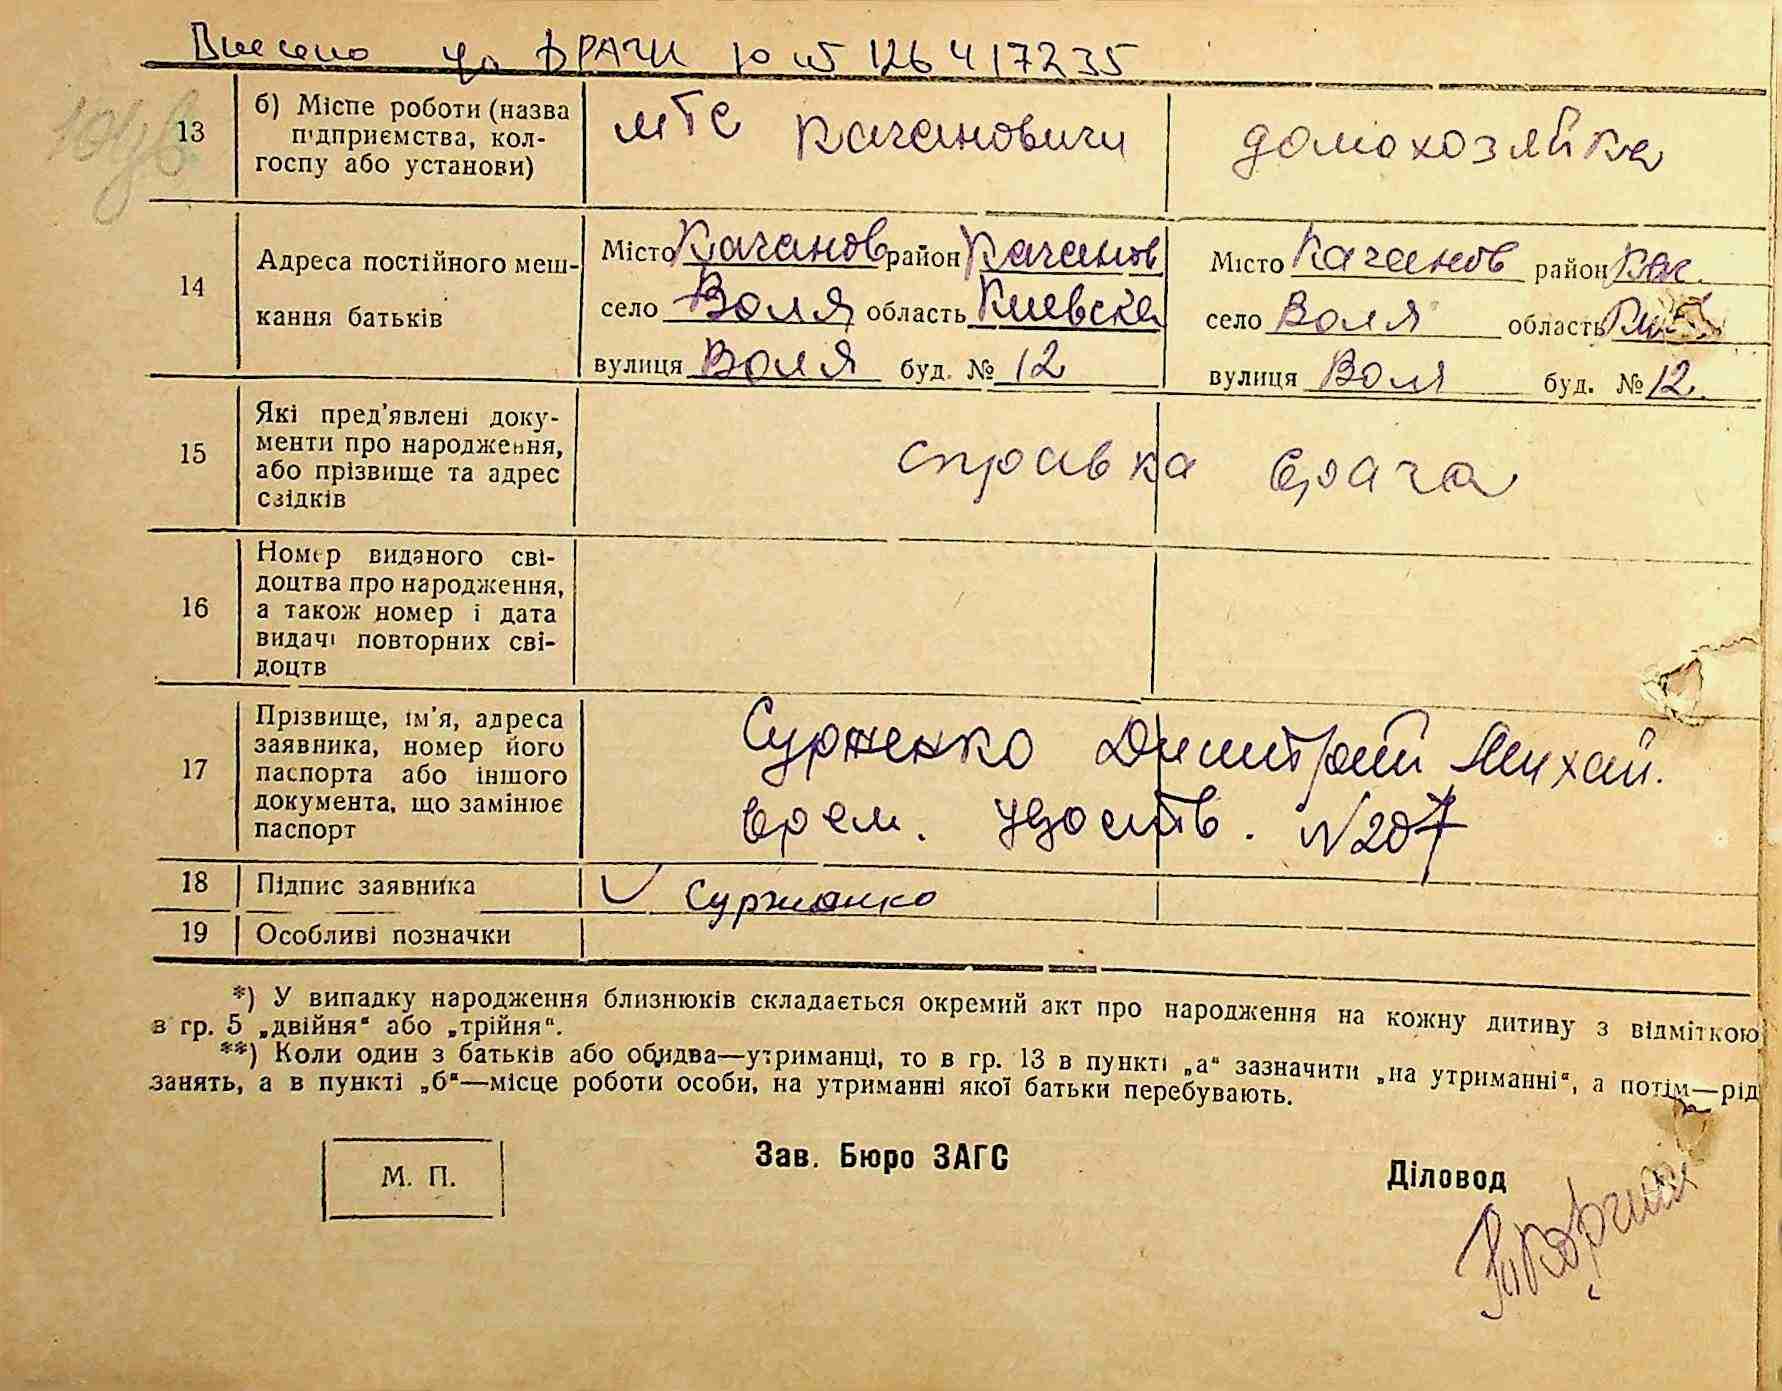 Внесено до ДРАЦС 126417235
13
б) Місце роботи (назва
підприємства, кол-
госпу або установи)
МТС Качановичи
домохозяйка
14
Адреса постійного меш-
кання батьків
Місто Качанов район Качанов
село Воля область Киевска
вулиця Воля буд. № 12
Місто Качанов район Кач.
село Воля область
вулиця Воля буд. № 12.
15
Які пред'явлені доку-
менти про народження,
або прізвище та адрес
свідків
справка врача
16
Номер виданого сві-
доцтва про народження,
а також номер і дата
видачі повторних сві-
доцтв
17
Прізвище, ім'я, адреса
заявника, номер його
паспорта або іншого
документа, що замінює
паспорт
Сурженко Димитрий Михай.
врем. удоств. №207
18
Підпис заявника
Суржанко
19
Особливі позначки
*) У випадку народження близнюків складається окремий акт про народження на кожну дитину з відміткою
в гр. 5 „двійня“ або „трійня“.
**) Коли один з батьків або обидва—утриманці, то в гр. 13 в пункті „а“ зазначити „на утриманні“, а потім—рід
занять, а в пункті „б“—місце роботи особи, на утриманні якої батьки перебувають.
М. П.
Зав. Бюро ЗАГС
Діловод